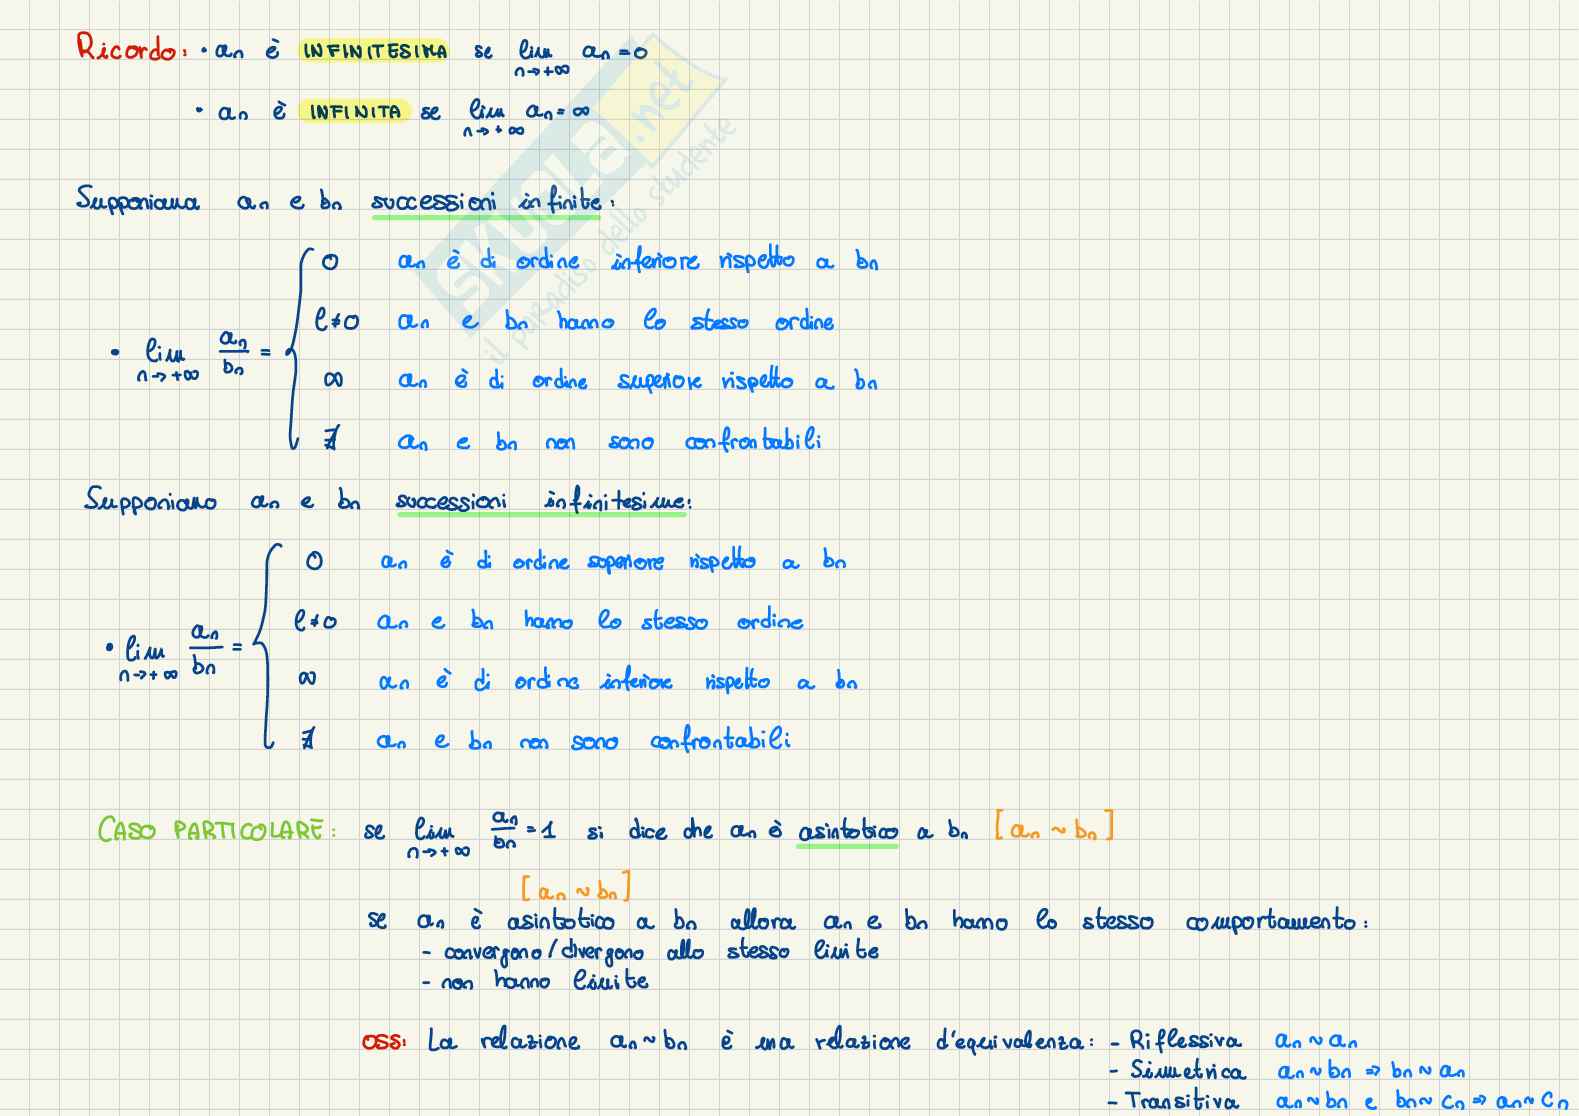 Ricordo: • an è INFINITESIMA se lim n→+∞ an = 0
• an è INFINITA se lim n→+∞ an = ∞
Supponiamo an e bn successioni infinite:
• lim n→+∞ an/bn =
0 an è di ordine inferiore rispetto a bn
l≠0 an e bn hanno lo stesso ordine
∞ an è di ordine superiore rispetto a bn
∄ an e bn non sono confrontabili
Supponiamo an e bn successioni infinitesime:
• lim n→+∞ an/bn =
0 an è di ordine superiore rispetto a bn
l≠0 an e bn hanno lo stesso ordine
∞ an è di ordine inferiore rispetto a bn
∄ an e bn non sono confrontabili
CASO PARTICOLARE: se lim n→+∞ an/bn = 1 si dice che an è asintotico a bn [an ~ bn]
[an ~ bn]
se an è asintotico a bn allora an e bn hanno lo stesso comportamento:
- convergono/divergono allo stesso limite
- non hanno limite
OSS: La relazione an ~ bn è una relazione d'equivalenza: - Riflessiva an ~ an
- Simmetrica an ~ bn ⇒ bn ~ an
- Transitiva an ~ bn e bn ~ cn ⇒ an ~ cn
skuola.net
il paradiso dello studente